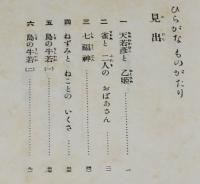 ひらがな ものがたり
見出
一 天若彦と乙姫
二 雀と二人のおばあさん
三 七福神
四 ねずみと ねことの いくさ
五 島の牛若(一)
六 島の牛若(二)